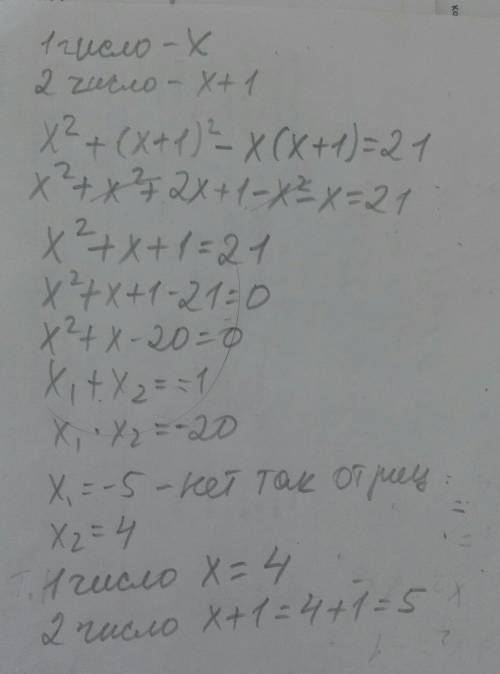 1 число - x
2 число - x+1
x² + (x+1)² - x(x+1) = 21
x² + x² + 2x + 1 - x² - x = 21
x² + x + 1 = 21
x² + x + 1 - 21 = 0
x² + x - 20 = 0
x₁ + x₂ = -1
x₁ · x₂ = -20
x₁ = -5 - нет так отриц.
x₂ = 4
1 число x = 4
2 число x+1 = 4+1 = 5